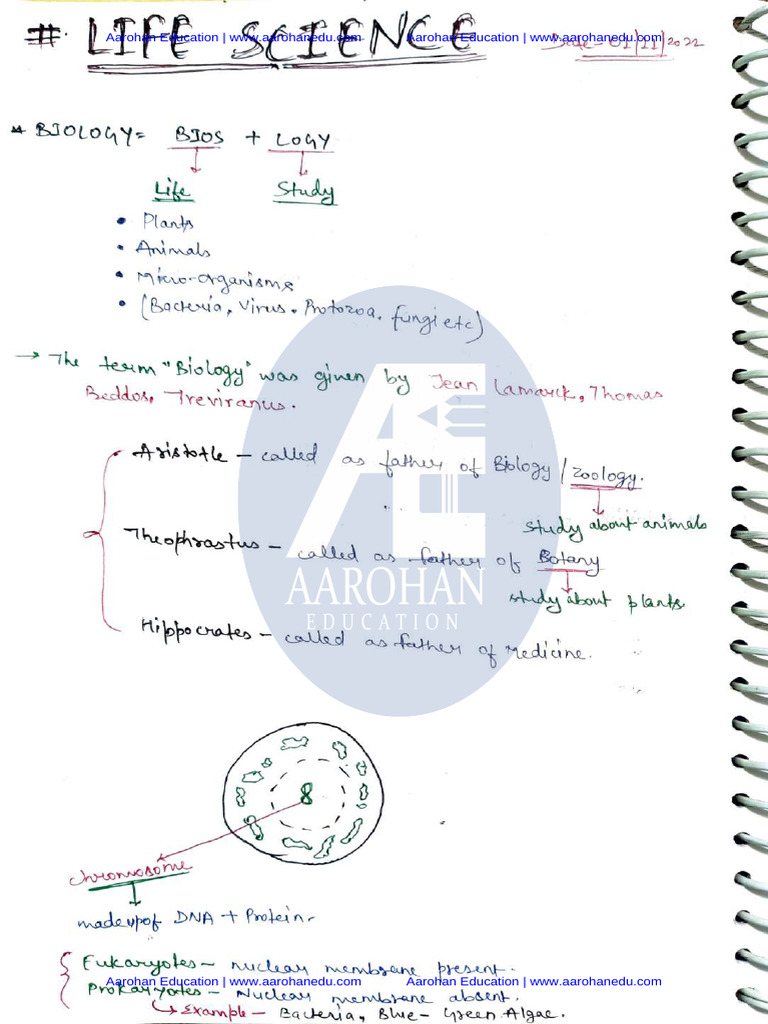 # LIFE SCIENCE
Aarohan Education | www.aarohanedu.com Aarohan Education | www.aarohanedu.com
Date - 01/11/2022
* BIOLOGY = BIOS + LOGY
Life Study
• Plants
• Animals
• Micro-organisms
• (Bacteria, Virus, Protozoa, fungi etc)
→ The term "Biology" was given by Jean Lamarck, Thomas
Beddos, Treviranus.
Aristotle - called as father of Biology / Zoology.
study about animals
Theophrastus - called as father of Botany
study about plants
AAROHAN
EDUCATION
Hippocrates - called as father of medicine.
chromosome
made up of DNA + Protein.
Eukaryotes - nuclear membrane present.
Aarohan Education | www.aarohanedu.com Aarohan Education | www.aarohanedu.com
Prokaryotes - Nuclear membrane absent.
↳ Example - Bacteria, Blue - Green Algae.